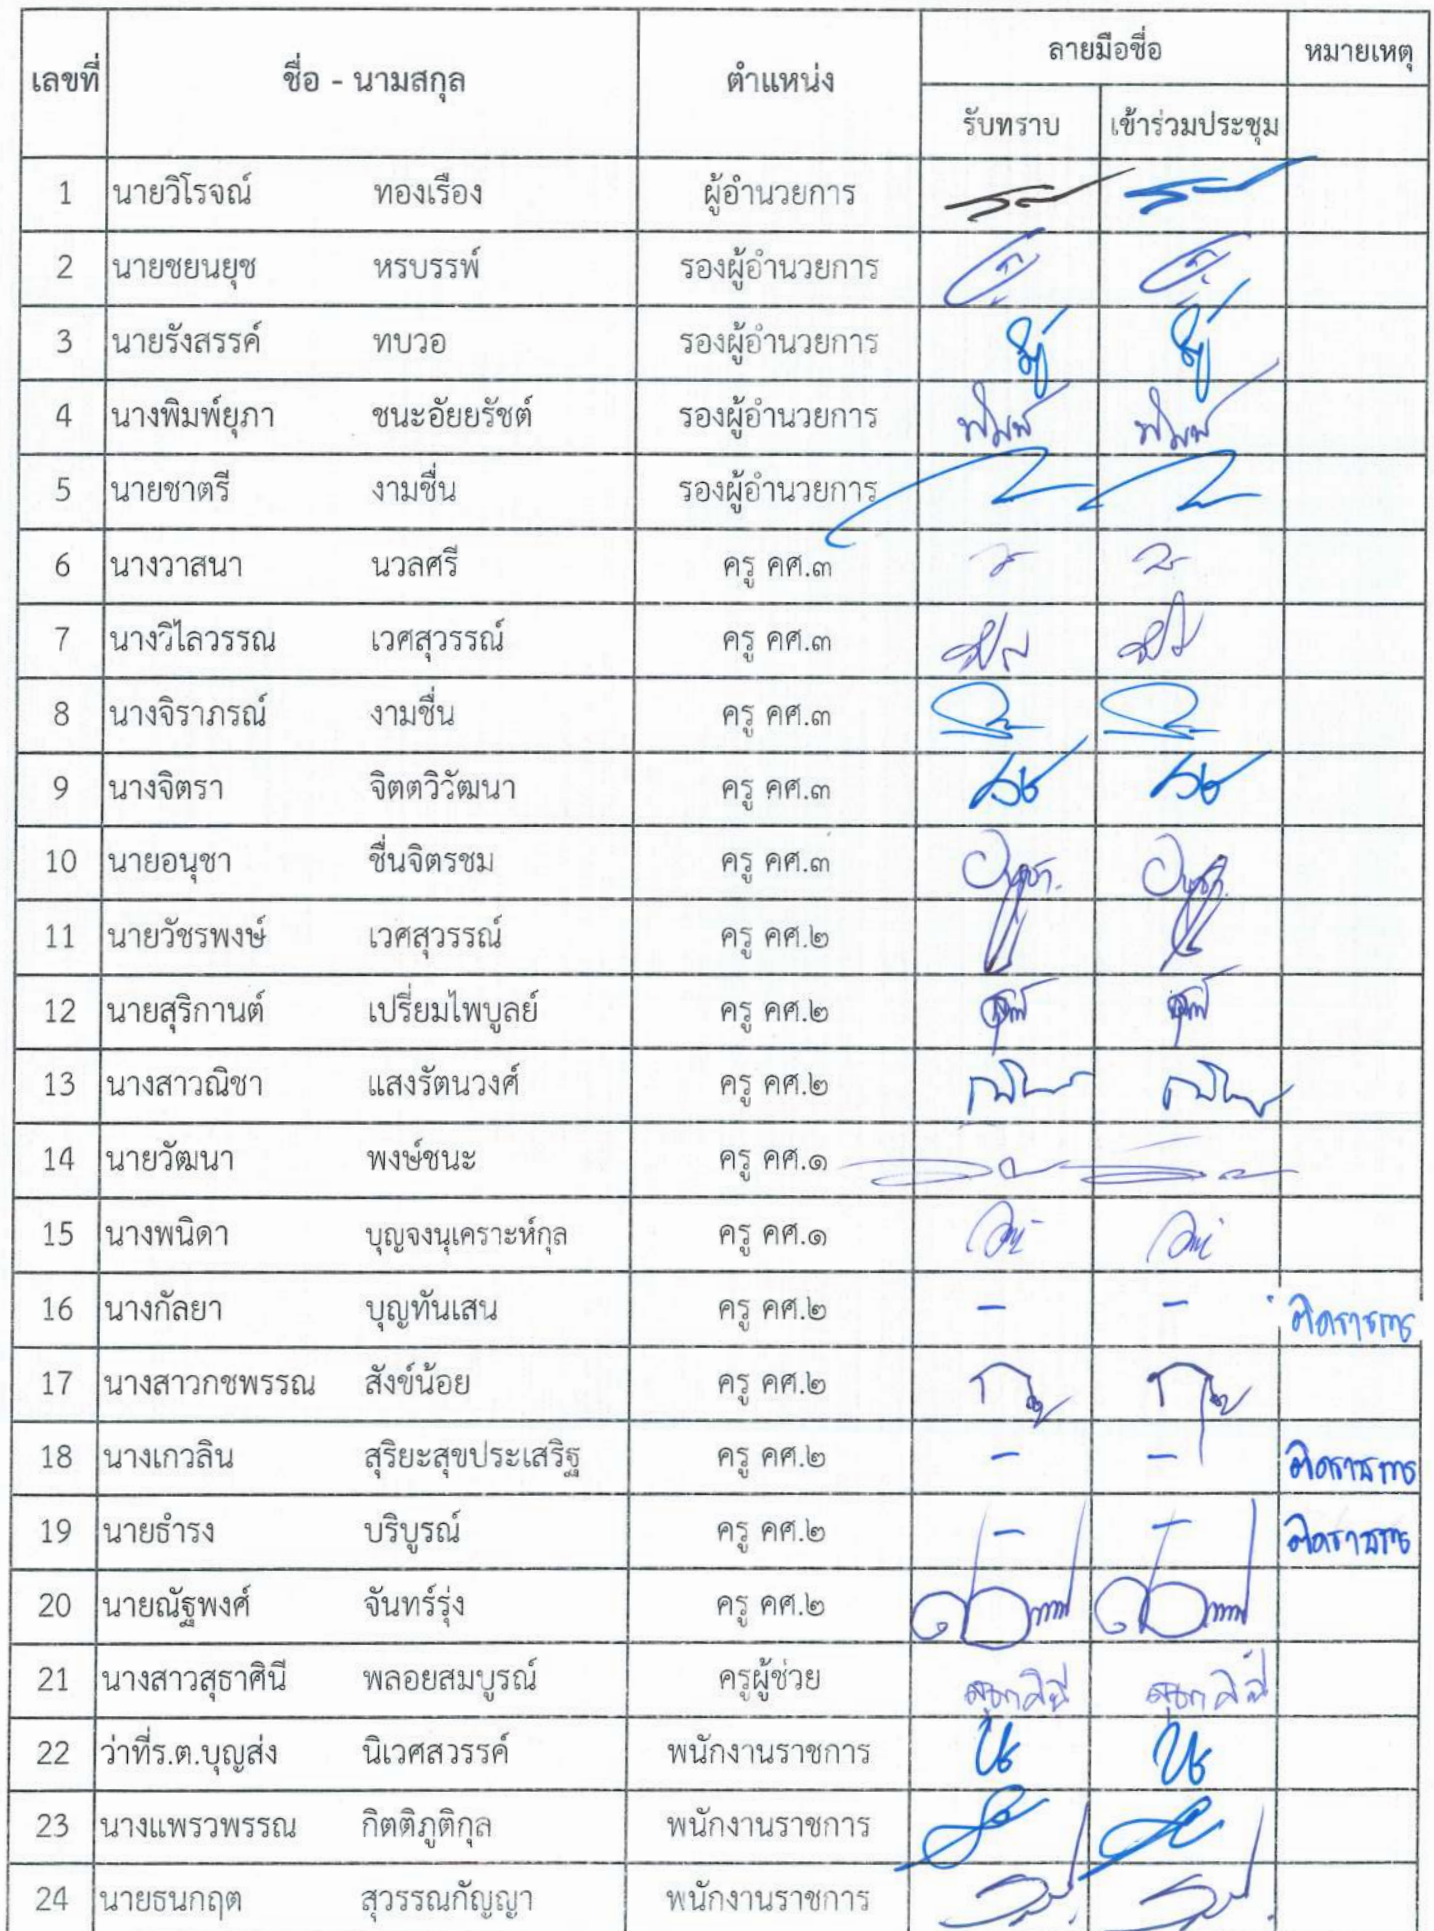 เลขที่ ชื่อ - นามสกุล ตำแหน่ง ลายมือชื่อ หมายเหตุ
รับทราบ เข้าร่วมประชุม
1 นายวิโรจณ์ ทองเรือง ผู้อำนวยการ
2 นายชยนยุช หรบรรพ์ รองผู้อำนวยการ
3 นายรังสรรค์ ทบวอ รองผู้อำนวยการ
4 นางพิมพ์ยุภา ชนะอัยยรัชต์ รองผู้อำนวยการ พิมพ์ พิมพ์
5 นายชาตรี งามชื่น รองผู้อำนวยการ
6 นางวาสนา นวลศรี ครู คศ.๓
7 นางวิไลวรรณ เวศสุวรรณ์ ครู คศ.๓
8 นางจิราภรณ์ งามชื่น ครู คศ.๓
9 นางจิตรา จิตตวิวัฒนา ครู คศ.๓
10 นายอนุชา ชื่นจิตรชม ครู คศ.๓ อนุชา อนุชา
11 นายวัชรพงษ์ เวศสุวรรณ์ ครู คศ.๒
12 นายสุริกานต์ เปรี่ยมไพบูลย์ ครู คศ.๒
13 นางสาวณิชา แสงรัตนวงศ์ ครู คศ.๒
14 นายวัฒนา พงษ์ชนะ ครู คศ.๑
15 นางพนิดา บุญจงนุเคราะห์กุล ครู คศ.๑
16 นางกัลยา บุญทันเสน ครู คศ.๒ - - ติดราชการ
17 นางสาวกชพรรณ สังข์น้อย ครู คศ.๒
18 นางเกวลิน สุริยะสุขประเสริฐ ครู คศ.๒ - - ติดราชการ
19 นายธำรง บริบูรณ์ ครู คศ.๒ - - ติดราชการ
20 นายณัฐพงศ์ จันทร์รุ่ง ครู คศ.๒
21 นางสาวสุธาศินี พลอยสมบูรณ์ ครูผู้ช่วย สุธาศินี สุธาศินี
22 ว่าที่ร.ต.บุญส่ง นิเวศสวรรค์ พนักงานราชการ
23 นางแพรวพรรณ กิตติภูติกุล พนักงานราชการ
24 นายธนกฤต สุวรรณกัญญา พนักงานราชการ